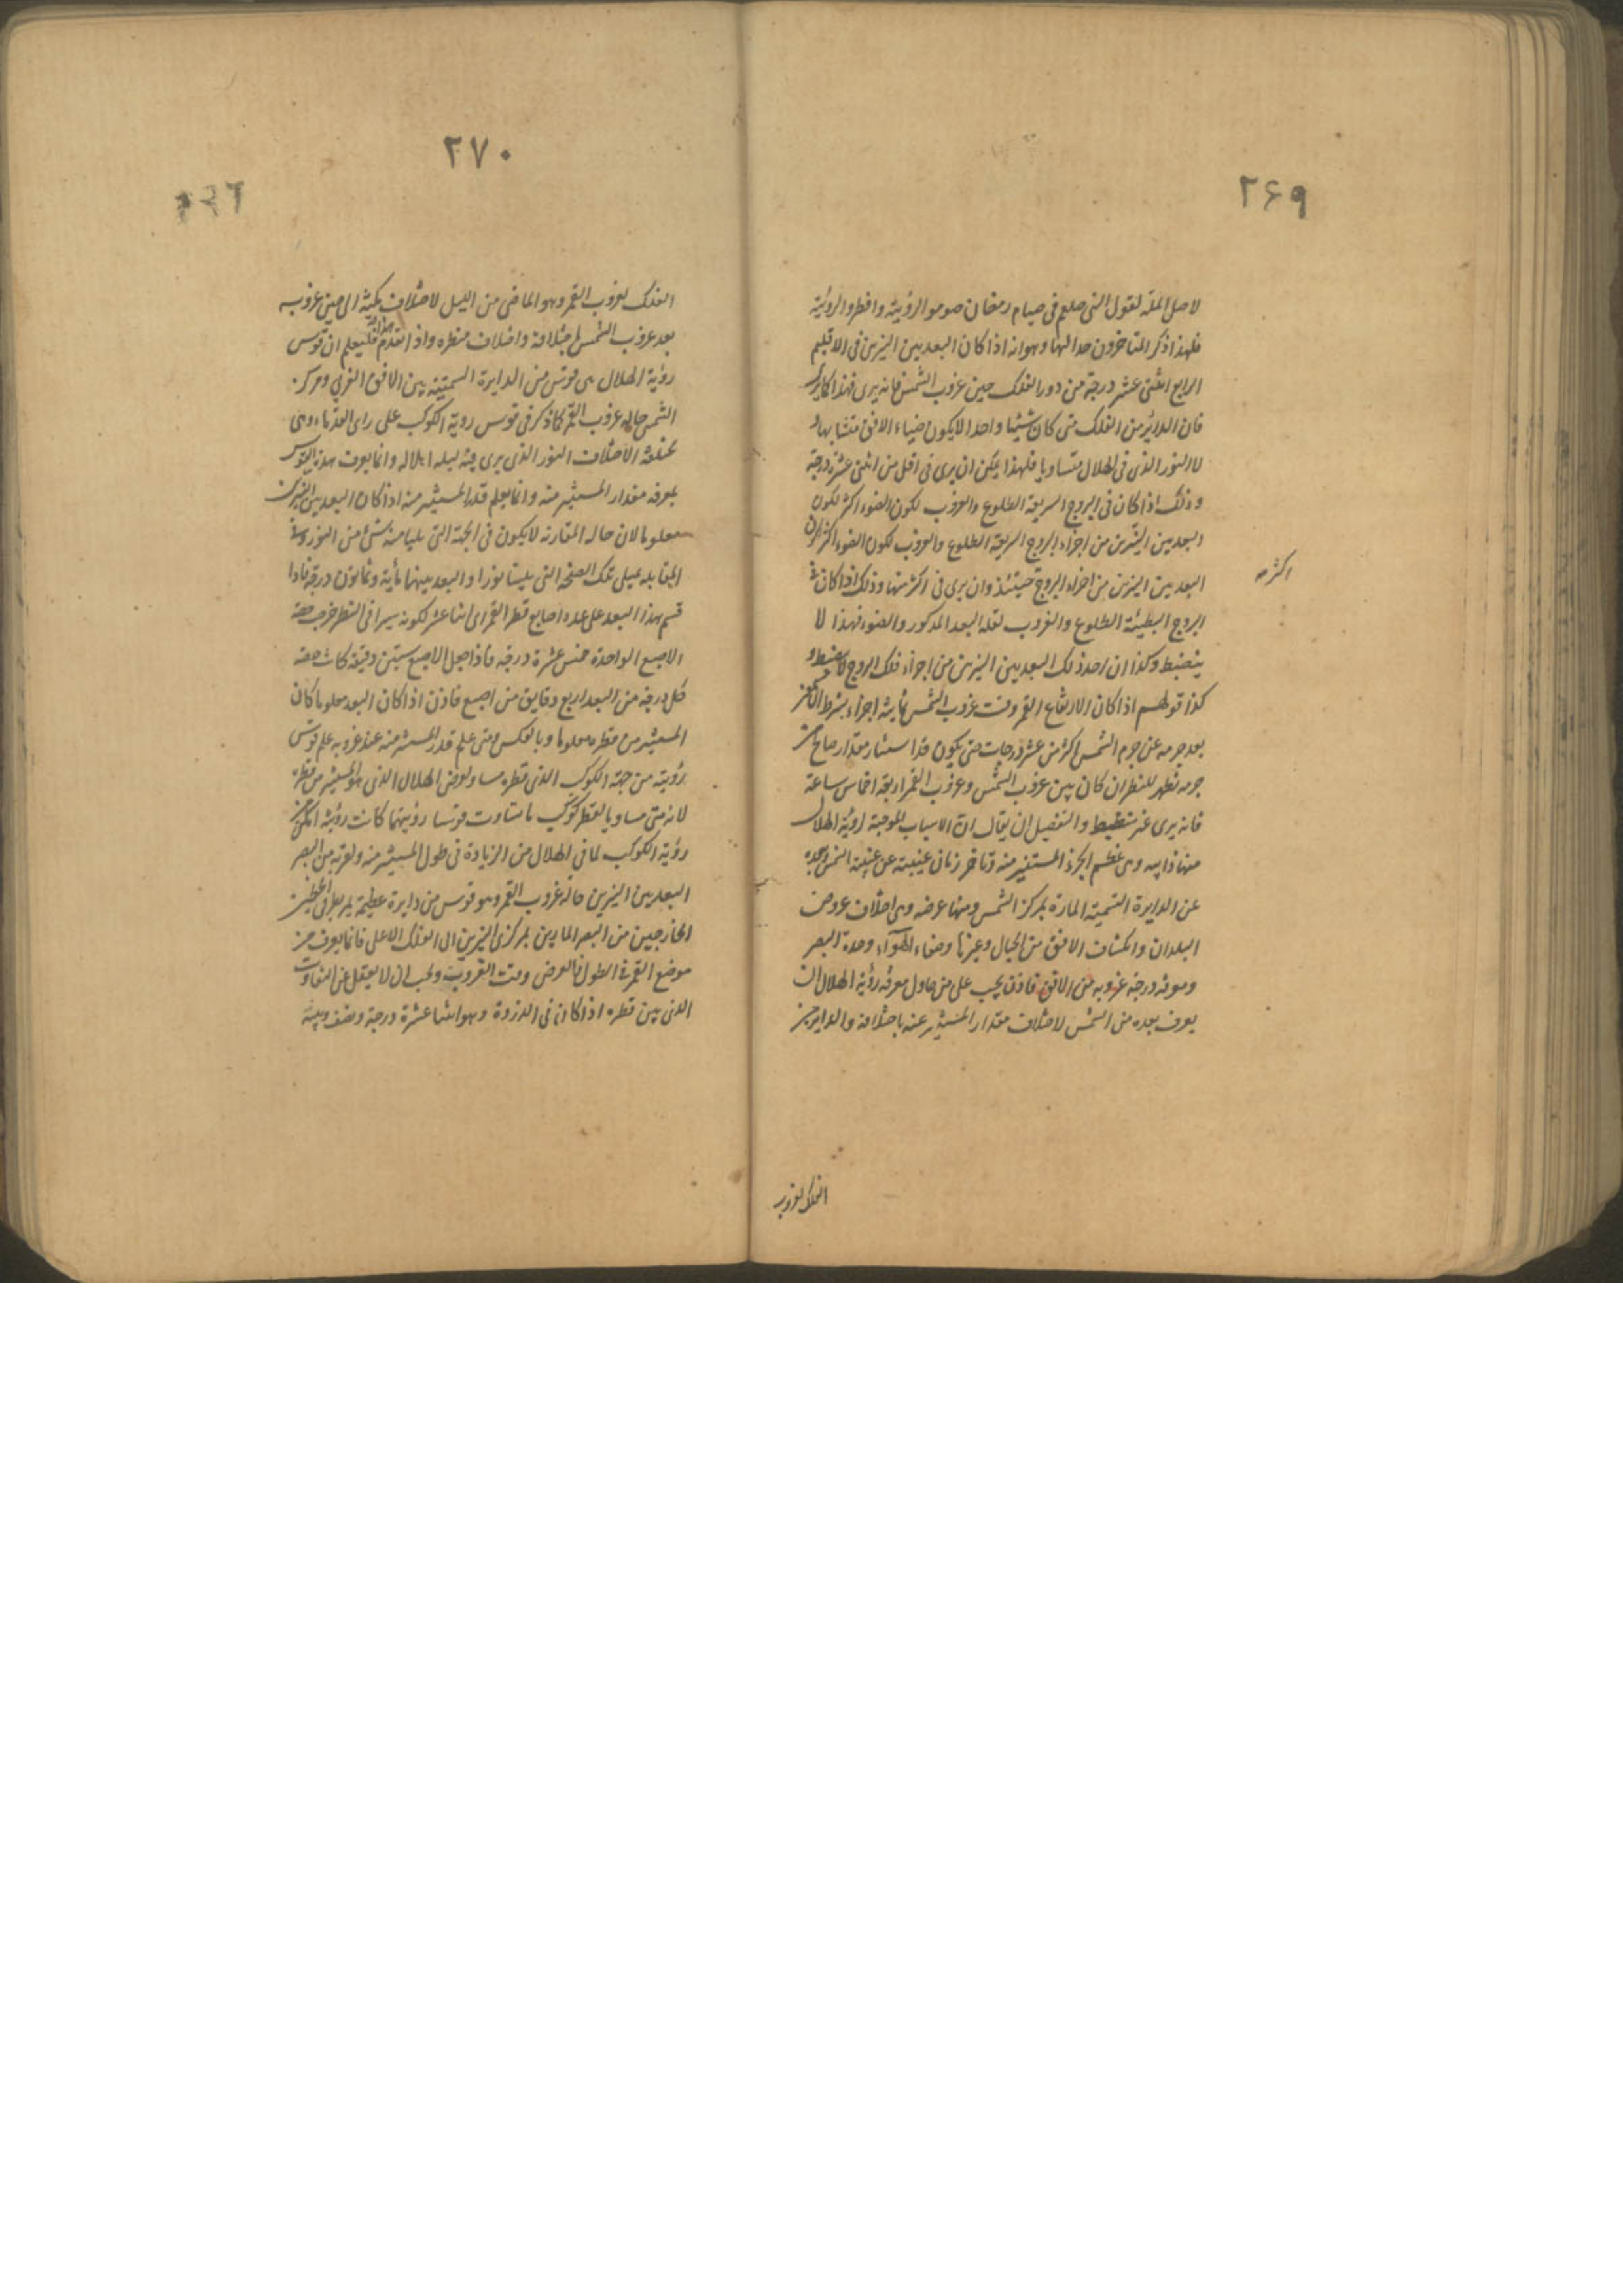 ٢۶٩
لاصل الملة لقول النبى صلعم فى صيام رمضان صوموا لرؤيته وافطروا لرؤيته
فلهذا ذكر المتاخرون حدا لها وهو انه اذا كان البعد بين النيرين فى الاقليم
الرابع اثنتى عشر درجة من دور الفلك حين غروب الشمس فانه يرى فهذا كالمحرك
فان الدائر من الفلك متى كان شيئا واحدا لا يكون ضياء الافق متشابها و
لا النور الذى فى الهلال متساويا فلهذا يمكن ان يرى فى اقل من اثنتى عشرة درجة
وذلك اذا كان فى البروج السريعة الطلوع والغروب لكون الضوء اكثر لكون
البعد بين النيرين من اجزاء البروج السريعة الطلوع والغروب لكون الضوء اكثر لكون
البعد بين النيرين من اجزاء البروج حينئذ وان يرى فى اكثر منها وذلك اذا كان فى
اكثر صح
البروج البطيئة الطلوع والغروب لقلة البعد المذكور والضوء فهذا لا
ينضبط وكذا ان احد ذلك البعد بين النيرين من اجزاء فلك البروج لا ينضبط و
كذا قولهم اذا كان الارتفاع القمر وقت غروب الشمس ثمانية اجزاء بشرط
بعد جرمه عن جرم الشمس اكثر من عشر درجات حتى يكون قد استنار مقدار صالح من
جرمه تظهر للنظر ان كان بين غروب الشمس وغروب القمر اربعة اخماس ساعة
فانه يرى غير منضبط والتفصيل ان يقال ان الاسباب الموجبة لرؤية الهلال
منها ذاتيه وهى عظم الجزء المستنير منه وتاخر زمان غيبته عن غيبة الشمس وبعده
عن الدايرة السمتية المارة بمركز الشمس ومنها عرضه وهى اختلاف عروض
البلدان وانكشاف الافق من الجبال وغيرها وصفاء الهوآء وحدة البصر
ومعرفة درجة غروبه من الافق فاذن يجب على من حاول معرفة رؤية الهلال ان
يعرف بعده من الشمس لاختلاف مقدار المستنير عنه باختلافه والداير من
الفلك لغروب
٢٧٠
الفلك لغروب القمر وهو الماضى من الليل لاختلاف مكثه الى حين غروبه
بعد غروب الشمس باختلافه واختلاف منظره واذ اتقدم هذا فليعلم ان قوس
رؤية الهلال هى قوس من الدايرة السمتية بين الافق الغربى ومركز
الشمس حالة غروب القمر كما ذكر فى قوس روية الكوكب على راى القدماء وهى
مختلفة لاختلاف النور الذى يرى فيه ليلة اهلاله وانما يعرف هذه القوس
بمعرفة مقدار المستنير منه وانما يعلم قدر المستنير منه اذا كان البعد بين النيرين
معلوما لان حالة المقارنة لا يكون فى الجهة التى يلينا منه شئ من النور وفى
المقابلة يمتلى تلك الصفحة التى يلينا نورا والبعد بينهما مأية وثمانون درجة فاذا
قسم هذا البعد على عدد اصابع قطر القمر اى اثنا عشر لكونه سيرا فى القطر خرج حصة
الاصبع الواحدة خمس عشرة درجة فاذا جعل الاصبع ستين دقيقة كانت حصة
كل درجة من البعد اربع دقايق من اصبع فاذن اذا كان البعد معلوما كان
المستنير من قطره معلوما وبالعكس ومتى علم قدر المستنير منه عند غروبه علم قوس
رؤيته من جهة الكوكب الذى قطره مساو لعرض الهلال الذى هو المستنير من قطره
لانه متى مساويا لقطر كوكب ما تساوت قوسا رؤيتهما كانت رؤيته امكن من
رؤية الكوكب لما فى الهلال من الزيادة فى طول المستنير منه ولقربه من البصر
البعد بين النيرين حالة غروب القمر وهو قوس من دايرة عظيمة يمر بطرفى الخطين
الخارجين من البصر المارين بمركزى النيرين الى الفلك الاعلى فانما يعرف من
موضع القمر فى الطول والعرض وقت الغروب ويجب ان لا يغفل عن التفاوت
الذى بين قطره اذا كان فى الذروة وهو اثنا عشرة درجة ونصف وبينه